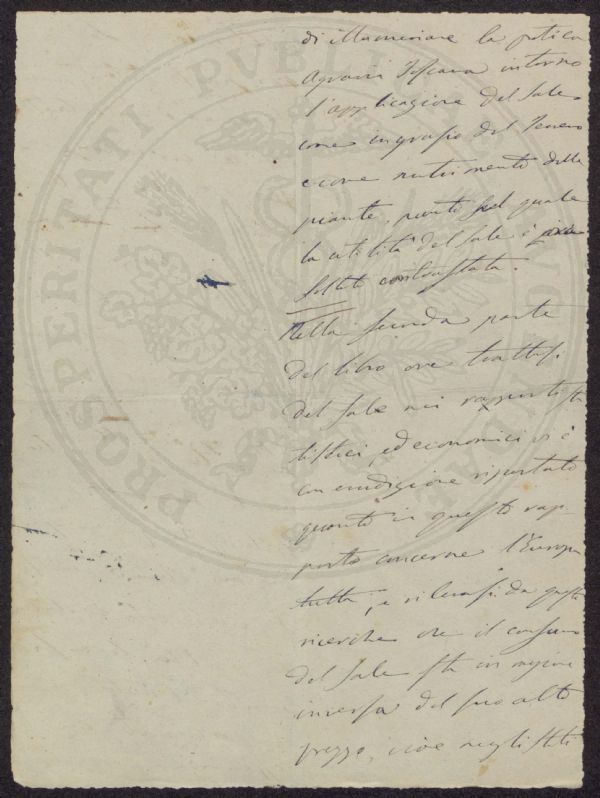 di illuminare la pratica
Agraria Toscana intorno
l'applicazione del Sale
come ingrasso del Terreno
e come nutrimento delle
piante, punti sul quale
la utilità del Sale è
contrastata.
Nella seconda parte
del libro ove trattasi
del Sale nei rapporti sta
tistici, ed economici vi è
con erudizione riportato
quanto in questo rap-
porto concerne l'Europa
tutta, e rilevasi da queste
ricerche che il consumo
del Sale sta in ragione
inversa del suo alto
prezzo, cioè negli Stati
PROSPERITATI PVBLICAE AVGENDAE